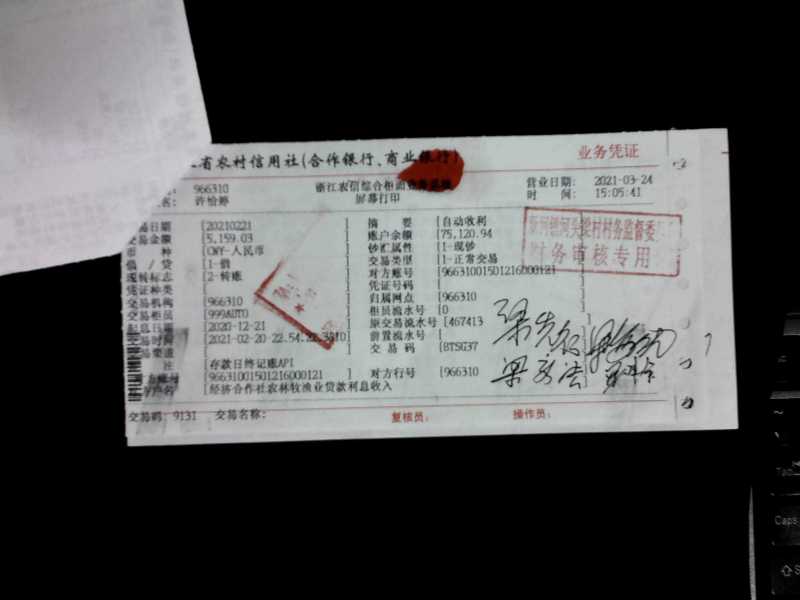 省农村信用社(合作银行、商业银行)
业务凭证
966310 浙江农信综合柜面业务系统 营业日期: 2021-03-24
名: 许怡婷 屏幕打印 时 间: 15:05:41
交易日期 [20210221 ] 摘 要 [自动收利
交易金额 [5,159.03 ] 账户余额 [75,120.94
币 种 [CNY-人民币 ] 钞汇属性 [1-现钞
借 / 贷 [1-借 ] 交易类型 [1-正常交易
现转标志 [2-转账 ] 对方账号 [966310015012160000121
凭证种类 [ ] 凭证号码 [
交易机构 [966310 ] 归属网点 [966310
交易柜员 [999AUTO ] 柜员流水号 [0
起息日期 [2020-12-21 ] 原交易流水号 [467413 ]
交易时间 [2021-02-20 22.54.22 ] 前置流水号 [ ]
交易渠道 [ ] 交 易 码 [BTSG37
注 [存款日终记账API
对方账号 [966310015012160000121 ] 对方行号 [966310
户名 [经济合作社农林牧渔业贷款利息收入
村务监督委
财务审核专用
交易码: 9131 交易名称: 复核员: 操作员:
Tab
Caps